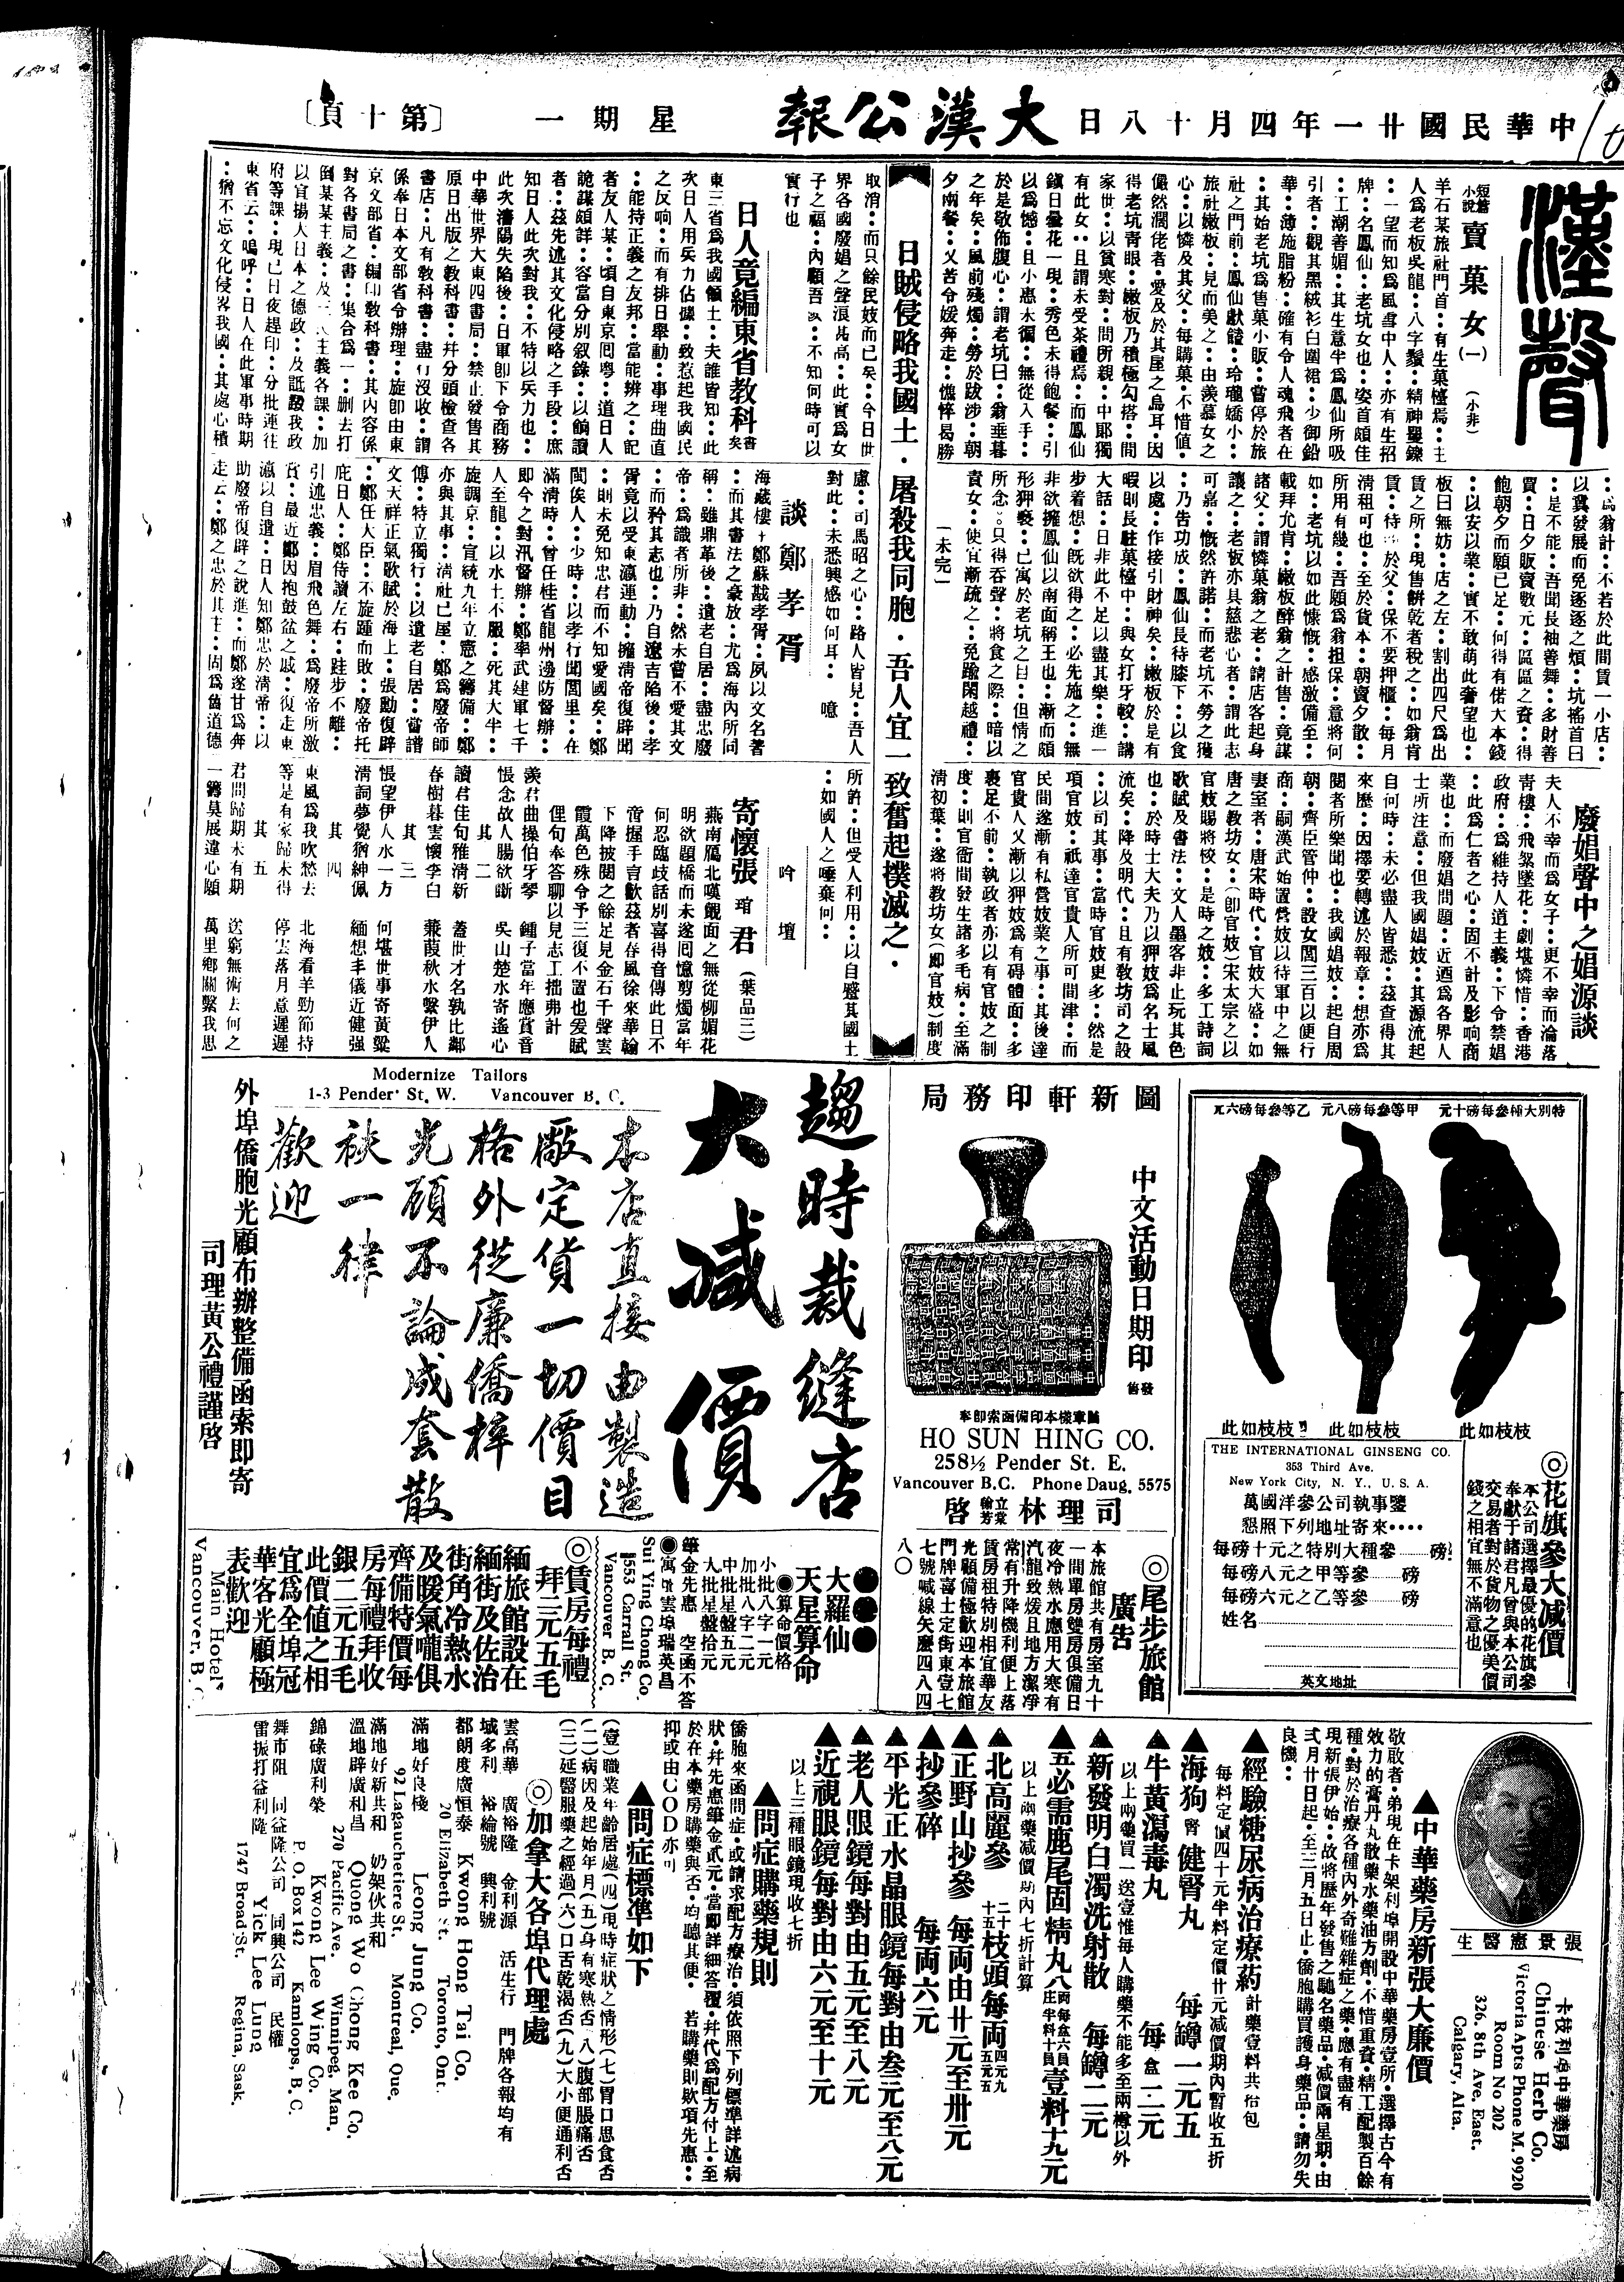 中華民國廿一年四月十八日
大漢公報
星期一
〔第十頁〕
漢聲
短篇小說
賣菓女(一)
(小非)
羊石某旅社門首︰有生菓檯焉︰主
人為老板吳龍︰八字鬚︰精神矍鑠
︰一望而知為風雪中人︰亦有生招
牌︰名鳳仙︰老坑女也︰姿首頗佳
︰工潮善媚︰其生意半為鳳仙所吸
引者︰觀其黑絨衫白圍裙︰少御鉛
華︰薄施脂粉︰確有令人魂飛者在
︰其始老坑為售菓小販︰嘗停於旅
社之門前︰鳳仙獻饎︰玲瓏嬌小︰
旅社嫩板︰見而美之︰由羨慕女之
心︰以憐及其父︰每購菓不惜値︰
儼然濶佬者︰愛及於其屋之烏耳︰因
得老坑靑眼︰嫩板乃積極勾搭︰間
家世︰以貧寒對︰問所親︰中郎獨
有此女︰且謂未受茶禮焉︰而鳳仙
鎮日曇花一現︰秀色未得飽餐︰引
以為憾︰且小惠未徧︰無從入手︰
於是敬佈腹心︰謂老坑曰︰翁垂暮
之年矣︰風前殘燭︰勞於跋涉︰朝
夕南餐︰又苦令媛奔走︰憔悴曷勝
︰為翁計︰不若於此間賃一小店︰
以冀發展而免逐逐之煩︰坑搖首曰
︰是不能︰吾聞長袖善舞︰多財善
賈︰日夕販賣數元︰區區之資︰得
飽朝夕而願已足︰何得有偌大本錢
︰以安以業︰實不敢萌此奢望也︰
板曰無妨︰店之左︰割出四尺為出
賃之所︰現售餅乾者稅之︰如翁肯
賃︰
保不要押櫃︰每月
清租可也︰至於貨本︰朝賣夕散︰
所用有幾︰吾願為翁担保︰意將何
如︰老坑以如此慷慨︰感激備至︰
載拜允肯︰嫩板醉翁之計售︰竟謀
諸父︰謂憐菓翁之老︰請店客起身
讓之︰老板亦具慈悲心者︰謂此志
可嘉︰慨然許諾︰而老坑不勞之獲
︰乃告功成︰鳳仙長待膝下︰以食
以處︰作接引財神矣︰嫩板於是有
暇則長駐菓檯中︰與女打牙較︰講
大話︰日非此不足以盡其樂︰進一
步着想︰既欲得之︰必先施之︰無
非欲擁鳳仙以南面稱王也︰漸而頗
形狎褻︰已寓於老坑之目︰但情之
所念︰只得吞聲︰將食之際︰暗以
責女︰使宜漸疏之︰免踰閑越禮︰
(未完)
廢娼聲中之娼源談
夫人不幸而為女子︰更不幸而淪落
靑樓︰飛絮墜花︰劇堪憐惜︰香港
政府︰為維持人道主義︰下令禁娼
︰此為仁者之心︰固不計及影响商
業也︰而廢娼問題︰近迺為各界人
士所注意︰但我國娼妓︰其源流起
自何時︰未必盡人皆悉︰茲查得其
來歷︰因擇要轉述於報章︰想亦為
閱者所樂聞也︰我國娼妓︰起自周
朝︰齊臣管仲︰設女閭三百以便行
商︰嗣漢武始置營妓以待軍中之無
妻室者︰唐宋時代︰官妓大盛︰如
唐之敎坊女︰(即官妓)宋太宗之以
官妓賜將佼︰是時之妓︰多工詩詞
歌賦及書法︰文人墨客非止玩其色
也︰於時士大夫乃以狎妓為名士風
流矣︰降及明代︰且有敎坊司之設
︰以司其事︰當時官妓更多︰然是
項官妓︰祇達官貴人所可問津︰而
民間遂漸有私營妓業之事︰其後達
官貴人又漸以狎妓為有碍體面︰多
裹足不前︰執政者亦以有官妓之制
度︰則官衙間發生諸多毛病︰至滿
淸初葉︰遂將敎坊女(即官妓)制度
日賊侵略我國土・屠殺我同胞・吾人宜一致奮起撲滅之・
取消︰而只餘民妓而已矣︰今日世
界各國廢娼之聲浪甚高︰此實為女
子之福︰內顧吾
︰不知何時可以
實行也
日人竟編東省教科書矣
東三省為我國領土︰夫誰皆知︰此
次日人用兵力佔據︰致惹起我國民
之反响︰而有排日舉動︰事理曲直
︰能持正義之友邦︰當能辨之︰記
者友人某︰頃自東京囘粵︰道日人
詭謀頗詳︰容當分別叙錄︰以餉讀
者︰茲先述其文化侵略之手段︰庶
知日人此次對我︰不特以兵力也︰
此次瀋陽失陷後︰日軍卽下令商務
中華世界大東四書局︰禁止發售其
原日出版之敎科書︰幷分頭檢查各
書店︰凡有敎科書︰盡行沒收︰謂
係奉日本文部省令辦理︰旋卽由東
京文部省︰編印敎科書︰其內容係
對各書局之書︰集合為一︰刪去打
倒某某主義︰及
主義各課︰加
以宣揚大日本之德政︰及詆譭我政
府等課︰現已日夜趕印︰分批運往
東省云︰嗚呼︰日人在此軍事時期
︰猶不忘文化侵畧我國︰其處心積
慮︰司馬昭之心︰路人皆見︰吾人
對此︰未悉興感如何耳︰噫
談鄭孝胥
海藏樓主鄭蘇戡孝胥︰夙以文名著
︰而其書法之豪放︰尤為海內所同
稱︰雖鼎革後︰遺老自居︰盡忠廢
帝︰為識者所非︰然未嘗不愛其文
︰而矜其志也︰乃自遼吉陷後︰孝
胥竟以受東瀛運動︰擁淸帝復辟聞
︰則未免知忠君而不知愛國矣︰鄭
閩侯人︰少時︰以孝行聞閭里︰在
滿淸時︰曾任桂省龍州邊防督辦︰
即今之對汛督辦︰鄭率武建軍七千
人至龍︰以水土不服︰死其大半︰
旋調京︰宣統九年立憲之籌備︰鄭
亦與其事︰淸社已屋︰鄭為廢帝師
傅︰特立獨行︰以遺老自居︰嘗譜
文天祥正氣歌賦於海上︰張勳復辟
︰鄭任大臣︰不旋踵而敗︰廢帝托
庇日人︰鄭侍讀左右︰跬步不離︰
引述忠義︰眉飛色舞︰為廢帝所激
賞︰最近鄭因抱鼓盆之戚︰復走東
瀛以自遺︰日人知鄭忠於淸帝︰以
助廢帝復辟之說進︰而鄭遂甘為奔
走云︰鄭之忠於其主︰固為舊道德
所許︰但受人利用︰以自鹽其國土
︰如國人之唾棄何︰
吟壇
寄懷張琯君
(葉品三)
燕南鴈北嘆覿面之無從柳媚花
明欲題橋而未遂囘憶剪燭當年
何忍臨歧話別喜得音傳此日不
啻握手言歡茲者春風徐來華翰
下降披閱之餘足見金石千聲雲
霞萬色殊令予三復不置也爰賦
俚句奉答聊以見志工拙弗計
羨君曲操伯牙琴
鍾子當年應賞音
悵念故人腸欲斷
吳山楚水寄遙心
其二
讀君佳句雅淸新
蓋世才名孰比鄰
春樹暮雲懷李白
蒹葭秋水繫伊人
其三
悵望伊人水一方
何堪世事寄黃粱
淸詞夢覺猶紳佩
緬想丰儀近健强
其四
東風為我吹愁去
北海看羊勁節持
等是有家歸未得
停雲落月意遲遲
其五
君問歸期未有期
送窮無術去何之
一籌莫展違心願
萬里鄉關繫我思
特別大種參每磅十元 甲等參每磅八元 乙等參每磅六元
此如枝枝
此如枝枝
此如枝枝
◎花旗參大减價
本公司選擇最優的花旗參
奉獻于諸君凡曾與本公司
交易者對於貨物之優美價
錢之相宜無不滿意也
THE INTERNATIONAL GINSENG CO.
353 Third Ave.
New York City, N. Y., U. S. A.
萬國洋參公司執事鑒
懇照下列地址寄來‥‥
每磅十元之特別大種參……磅
每磅八元之甲等參……磅
每磅六元之乙等參……磅
姓名
英文地址
圖新軒印務局
中文活動日期印
發售
圖章樣本印備函索卽寄
HO SUN HING CO.
258½ Pender St. E.
Vancouver B.C. Phone Daug. 5575
司理林立業翰芳啓
趨時裁縫店
大减價
本店直接由製造
廠定貨一切價目
格外從廉僑梓
光顧不論成套散
袂一律
歡迎
Modernize Tailors
1-3 Pender St. W. Vancouver B. C.
外埠僑胞光顧布辦整備函索即寄
司理黃公禮謹啓
◎尾步旅館
廣告
本旅館共有房室九十
一間單房雙房俱備日
夜冷熱水應用大寒有
汽龍致煖且地方潔凈
常有升降機利便上落
賃房租特別相宜華友
光顧備極歡迎本旅館
門牌喜士定街東壹七
七號喊線矢麽四八四
八〇
大羅仙
天星算命
◉算命價格
小批八字一元
加批八字二元
中批星盤五元
大批星盤拾元
筆金先惠 空函不答
◉寓雲埠瑞英昌
Sui Ying Chong Co.
553 Carrall St.
Vancouver B. C.
◎賃房每禮
拜二元五毛
緬旅館設在
緬街及佐治
街角冷熱水
及暖氣嚨俱
齊備特價每
房每禮拜收
銀二元五毛
此價値之相
宜為全埠冠
華客光顧極
表歡迎
Main Hotel
Vancouver, B. C.
張景憲醫生
卡技利埠中華藥房
Chinese Herb Co.
Victoria Apts Phone M. 9920
Room No 202
326. 8th Ave. East.
Calgary, Alta.
▲中華藥房新張大廉價
敬敢者・弟現在卡架利埠開設中華藥房壹所・選擇古今有
效力的膏丹丸散藥水藥油方劑・不惜重資・精工配製百餘
種・對於治療各種內外奇難雜症之藥・應有盡有
現新張伊始︰故將歷年發售之馳名藥品・减價兩星期・由
弍月廿日起・至三月五日止・僑胞購買護身藥品︰請勿失
良機︰
▲經驗糖尿病治療葯 計藥壹料共拾包
每料定價四十元半料定價廿元減價期內暫收五折
▲海狗腎健腎丸 每罇一元五
▲牛黃瀉毒丸 每盒一二元
以上兩藥買一送壹惟每人購藥不能多至兩罇以外
▲新發明白濁洗射散 每罇二元
▲五必需鹿尾固精丸 八両每盒六員八庄半料十員 壹料十九元
以上兩藥減價期內七折計算
▲北高麗參 二十枝頭每両四元九 十五枝頭每両五元五
▲正野山抄參 每両由廿元至卅元
▲抄參碎 每両六元
▲平光正水晶眼鏡每對由叁元至八元
▲老人眼鏡每對由五元至八元
▲近視眼鏡每對由六元至十元
以上三種眼鏡現收七折
▲問症購藥規則
僑胞來函問症・或請求配方療治・須依照下列標準詳述病
狀・幷先惠筆金貳元・當即詳細答覆・幷代為配方付上・至
於在本藥房購藥與否・均聽其便・若購藥則欵項先惠︰
抑或由C O D亦可
▲問症標準如下
(壹)職業年齡居處(四)現時症狀之情形(七)胃口思食否
(二)病因及起始年月(五)身有寒熱否(八)腹部脹痛否
(三)延醫服藥之經過(六)口舌乾渴否(九)大小便通利否
◎加拿大各埠代理處
雲高華 廣裕隆 金利源 活生行 門牌各報均有
域多利 裕綸號 興利號
都朗度廣恒泰 Kwong Hong Tai Co.
20 Elizabeth St. Toronto, Ont.
滿地好良棧 Leong Jung Co.
92 Lagauchetiere St. Montreal, Que.
滿地好新共和 奶架伙共和
溫地辟廣和昌 Quong Wo Chong Kee Co.
270 Pacific Ave. Winnipeg, Man.
錦碌廣利榮 Kwong Lee Wing Co.
P. O. Box 142 Kamloops, B. C.
舞市阻 同益隆公司 同興公司 民權
雷振打益利隆 Yick Lee Lung
1747 Broad St. Regina, Sask.